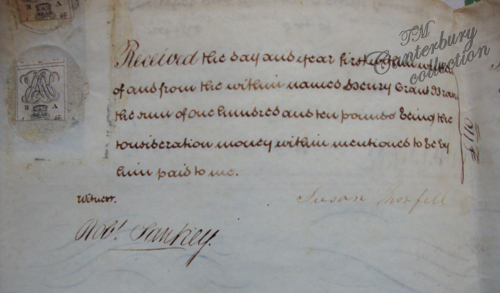 TM
Canterbury
collection
Received the day and year first within written
of and from the within named Henry Grant
the sum of one hundred and ten pounds being the
consideration money within mentioned to be by
him paid to me.
£110
Witness.
Susan
Robt. Sankey.